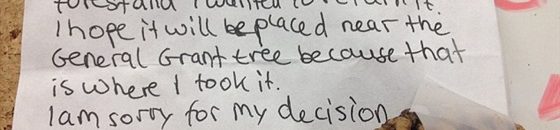 I hope it will be placed near the
General Grant tree because that
is where I took it.
I am sorry for my decision